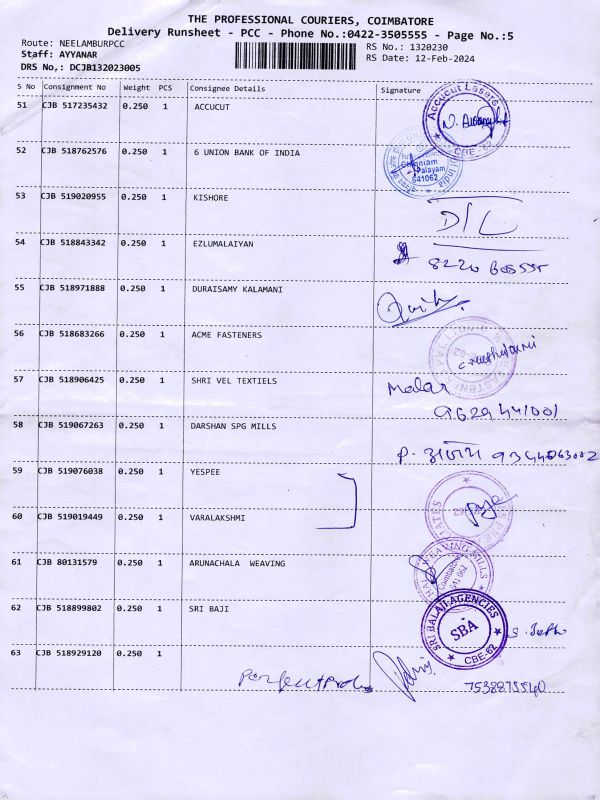 THE PROFESSIONAL COURIERS, COIMBATORE
Delivery Runsheet - PCC - Phone No.:0422-3505555 - Page No.:5
Route: NEELAMBURPCC
Staff: AYYANAR
DRS No,: DCJB132023005
RS No.: 1320230
RS Date: 12-Feb-2024
S No Consignment No Weight PCS Consignee Details Signature
51 CJB 517235432 0.250 1 ACCUCUT
Accucut Lasers
CBE-62
52 CJB 518762576 0.250 1 6 UNION BANK OF INDIA
Chinniam
palayam
641062
53 CJB 519020955 0.250 1 KISHORE
D/L
54 CJB 518843342 0.250 1 EZLUMALAIYAN
55 CJB 518971888 0.250 1 DURAISAMY KALAMANI
56 CJB 518683266 0.250 1 ACME FASTENERS
57 CJB 518906425 0.250 1 SHRI VEL TEXTIELS
Malar
9629441001
58 CJB 519067263 0.250 1 DARSHAN SPG MILLS
59 CJB 519076038 0.250 1 YESPEE
60 CJB 519019449 0.250 1 VARALAKSHMI
61 CJB 80131579 0.250 1 ARUNACHALA WEAVING
WEAVING MILLS
Coimbatore
641 062
62 CJB 518899802 0.250 1 SRI BAJI
SRI BALAJI AGENCIES
SBA
CBE-62
63 CJB 518929120 0.250 1
7538875540